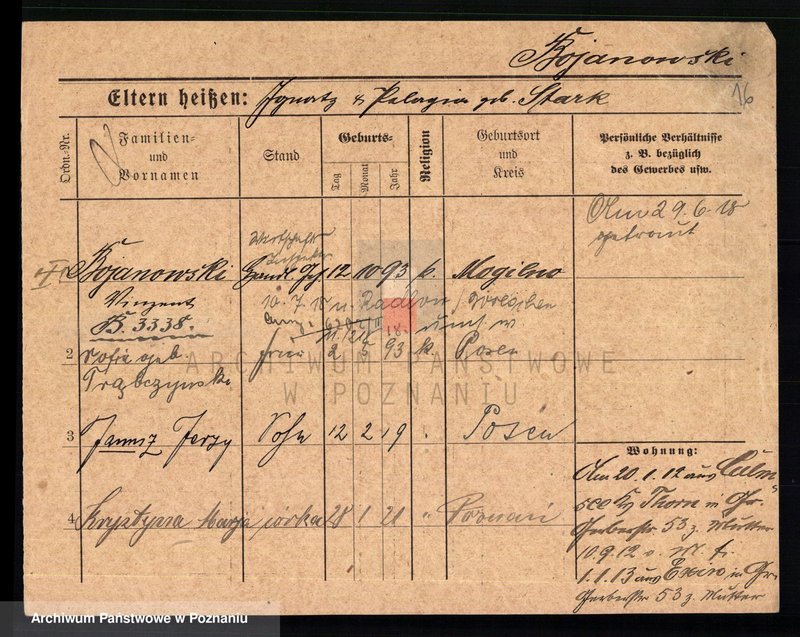 Bojanowski
16
Eltern heißen: Ignatz & Pelagia geb. Stark
Ordn.-Nr.
Familien- und Vornamen
Stand
Geburts-
Tag
Monat
Jahr
Religion
Geburtsort und Kreis
Persönliche Verhältnisse z. B. bezüglich des Gewerbes usw.
Am 29.6.18
getraut
Wirtschafts
Bojanowski Handl. 12 10 93 k. Mogilno
Vinzent 10.7.15 n. Wreschen
B. 3338.
2 Sofie geb. 2 5 93 k. Posen
Trąbczyńska
3 Janusz Jerzy Sohn 12 2 19 " Posen
4 Krystyna Marja córka 28 1 21 " Poznań
Wohnung:
Am 20.1.12 aus Culm-
see Kr. Thorn in Gr.
Gerberstr 53 z. Mutter
10.9.12
1.1.13 aus Exin in Gr.
Gerberstr 53 z. Mutter
ARCHIWUM PAŃSTWOWE
W POZNANIU
Archiwum Państwowe w Poznaniu